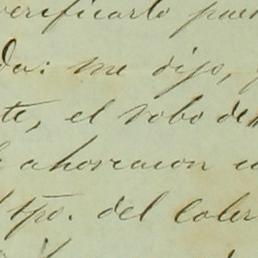 verificarlo pues
da: me dijo, y
te, el robo de
ahorcaron
tpo. del Coler